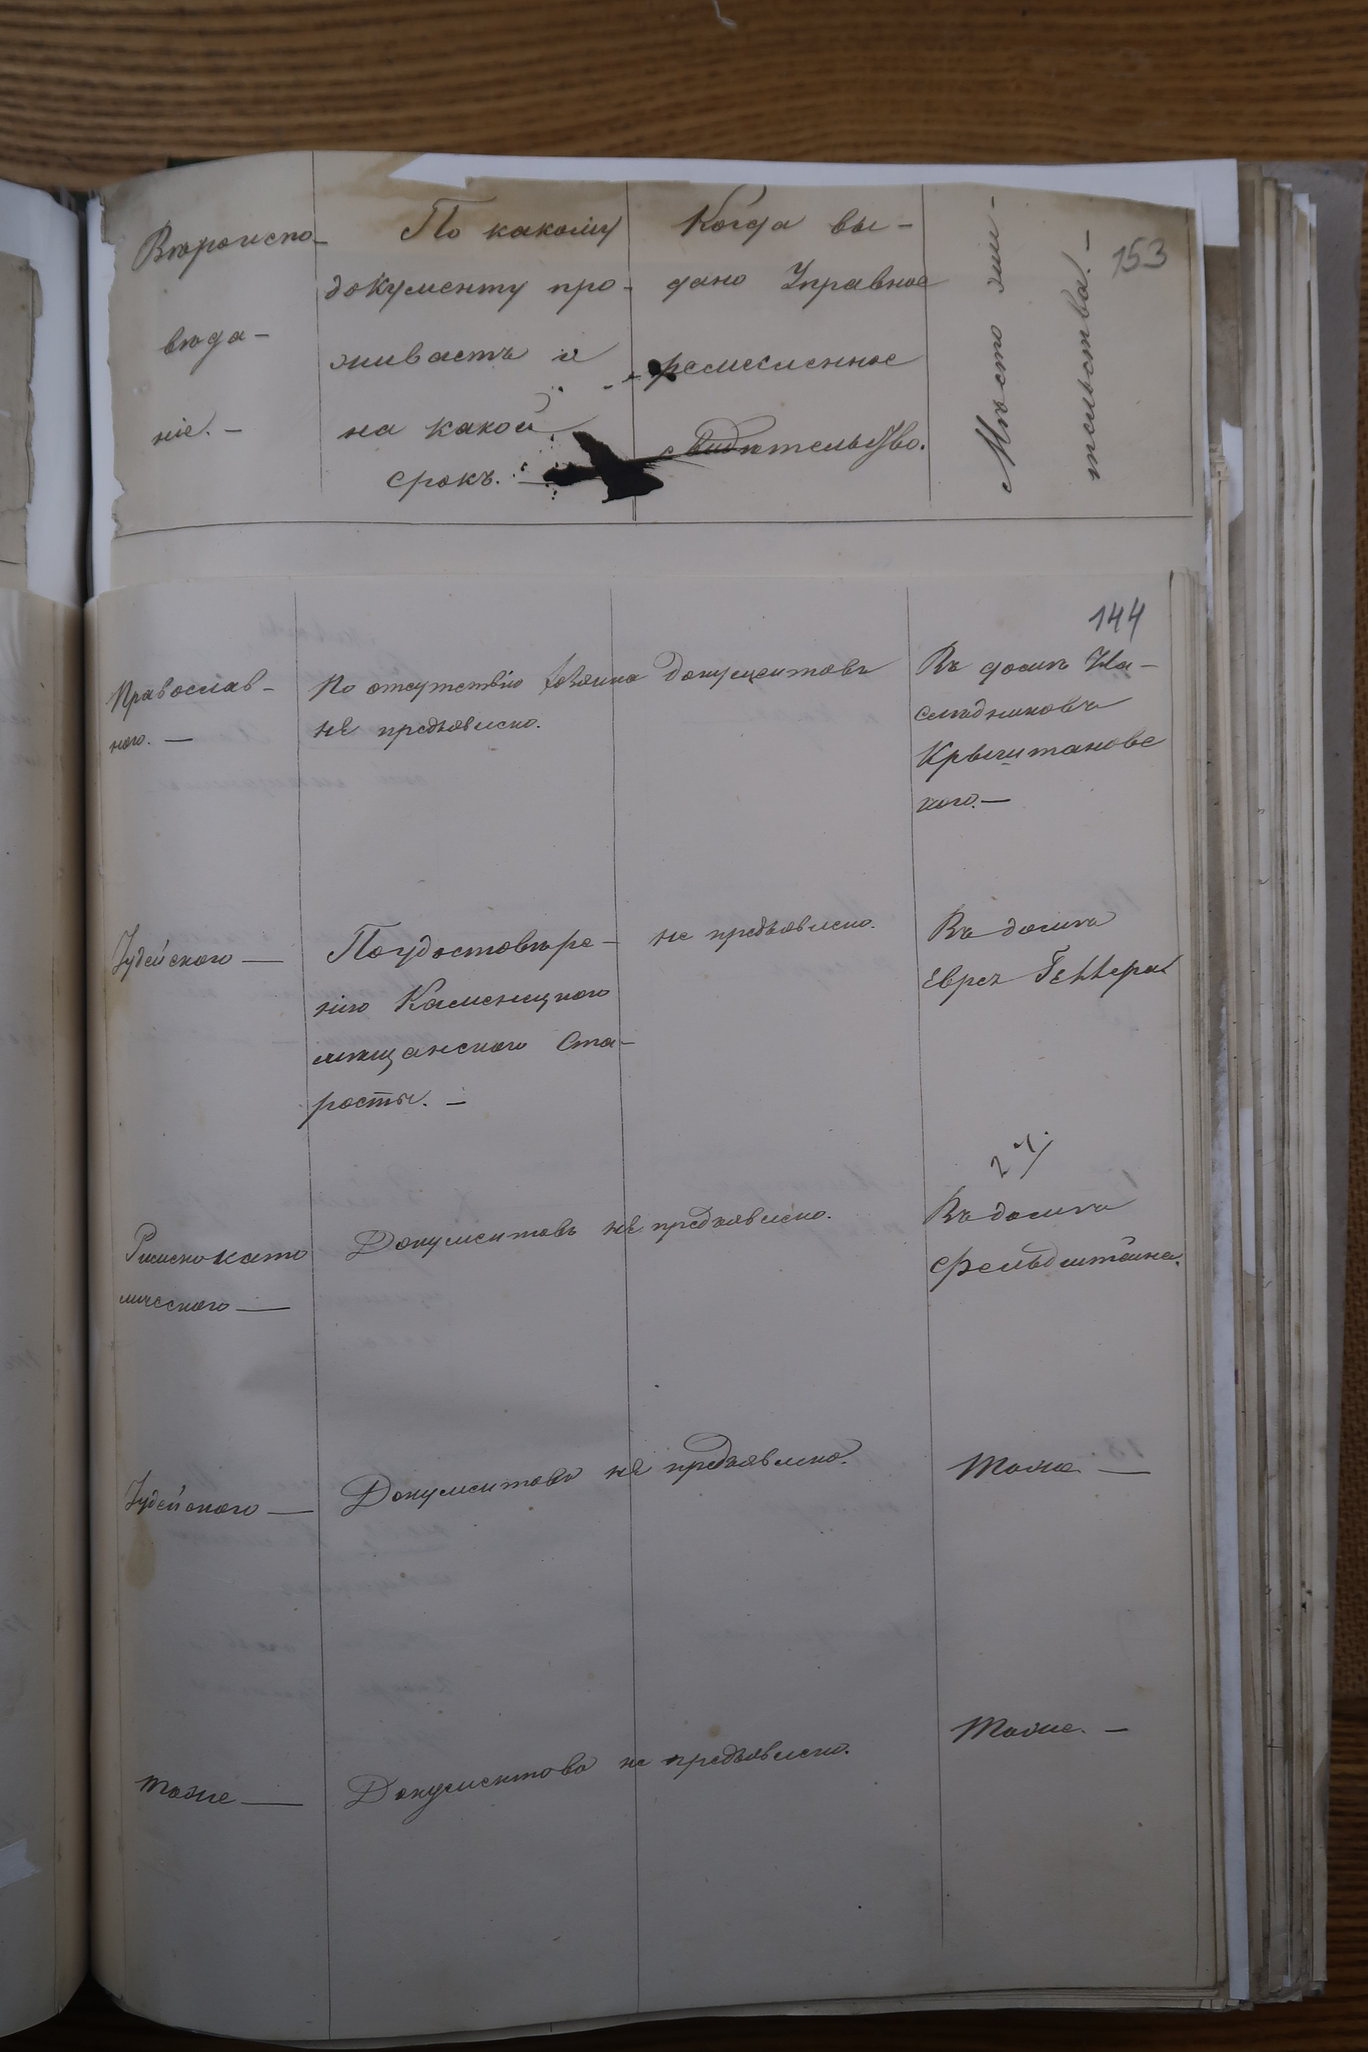 Вѣроиспо-
вѣда-
ніе. -
По какому
документу про-
живаетъ и
на какой
срокъ. -
Когда вы-
дано Управное
ремесленное
свидѣтельство.
Мѣсто жи-
тельства. -
153
144
Православ-
ного. —
По отсутствію хозяина документовъ
не предъявлено.
Въ домѣ На-
слѣдниковъ
Крыштановс
кого. —
Іудейского —
По удостовѣре-
нію Каменецкого
мѣщанского Ста-
росты. -
не предъявлено.
Въ домѣ
Еврея Геллера
2 ч.
Римскокато
лического —
Документовъ не предъявлено.
Въ домѣ
Фельдштейна.
Іудейского —
Документовъ не предъявлено.
Тоже —
Тоже —
Документовъ не предъявлено.
Тоже. -